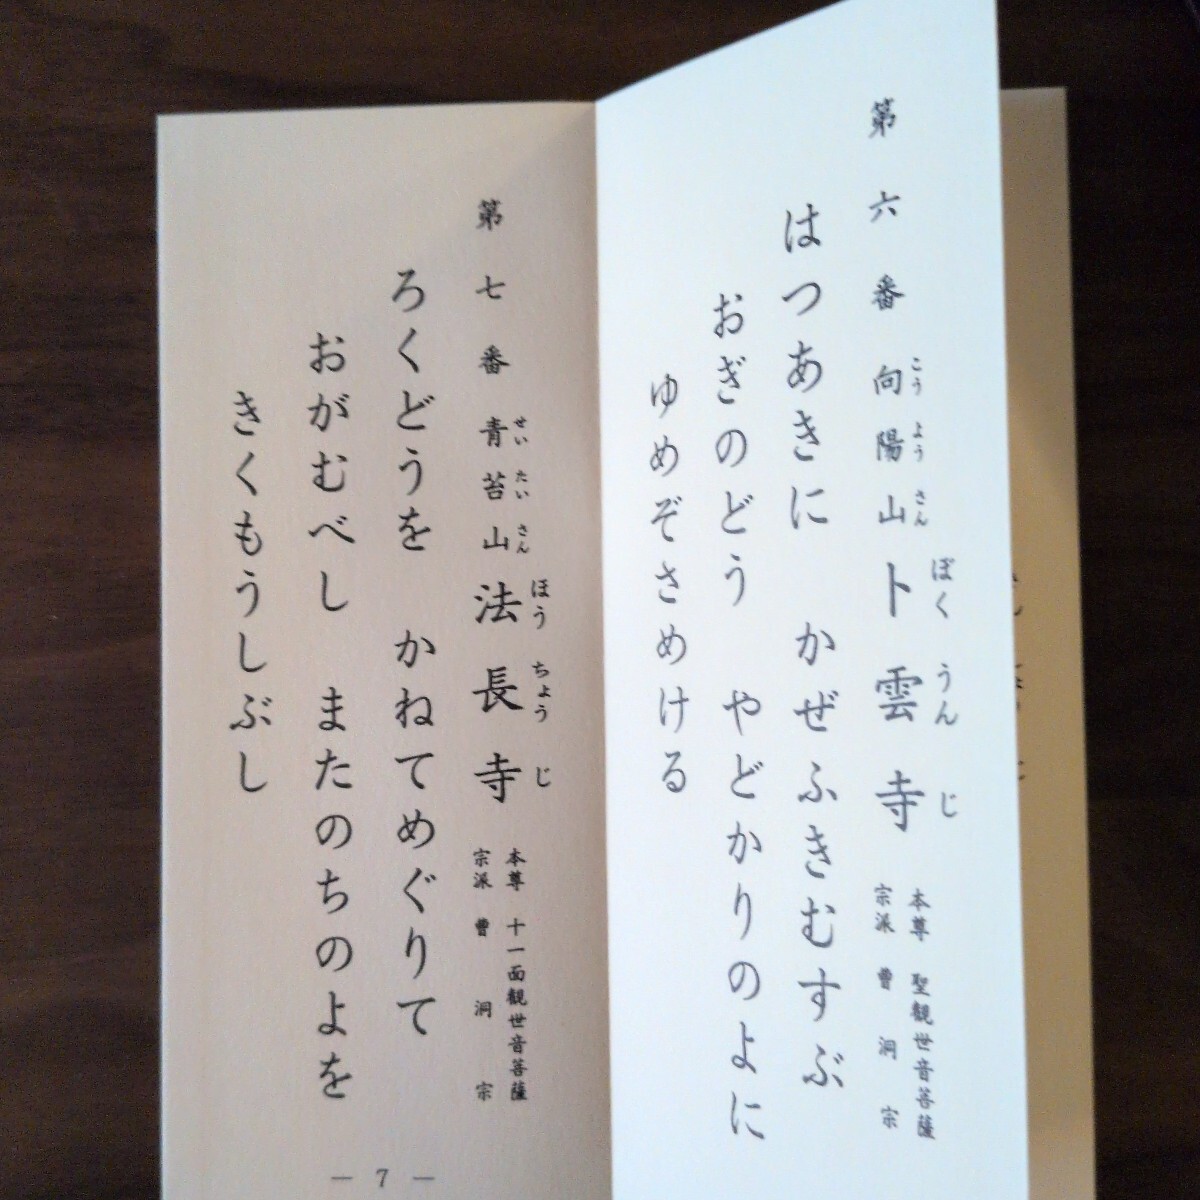 第六番 向陽山 卜雲寺
こうようさん ぼくうんじ
本尊 聖観世音菩薩
宗派 曹洞宗
はつあきに かぜふきむすぶ
おぎのどう やどかりのよに
ゆめぞさめける
第七番 青苔山 法長寺
せいたいさん ほうちょうじ
本尊 十一面観世音菩薩
宗派 曹洞宗
ろくどうを かねてめぐりて
おがむべし またのちのよを
きくもうしぶし
— 7 —